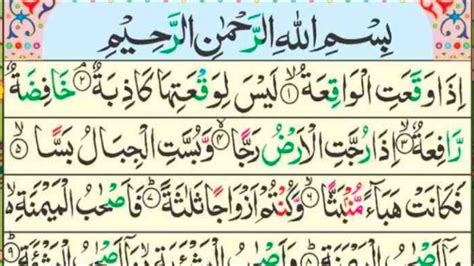 بِسْمِ اللهِ الرَّحْمٰنِ الرَّحِيْمِ
اِذَا وَقَعَتِ الْوَاقِعَةُ ۙ﴿۱﴾ لَيْسَ لِوَقْعَتِهَا كَاذِبَةٌ ۘ﴿۲﴾ خَافِضَةٌ
رَّافِعَةٌ ۙ﴿۳﴾ اِذَا رُجَّتِ الْاَرْضُ رَجًّا ۙ﴿۴﴾ وَّبُسَّتِ الْجِبَالُ بَسًّا ۙ﴿۵﴾
فَكَانَتْ هَبَآءً مُّنْۢبَثًّا ۙ﴿۶﴾ وَّكُنْتُمْ اَزْوَاجًا ثَلٰثَةً ؕ﴿۷﴾ فَاَصْحٰبُ الْمَيْمَنَةِ ۙ۬